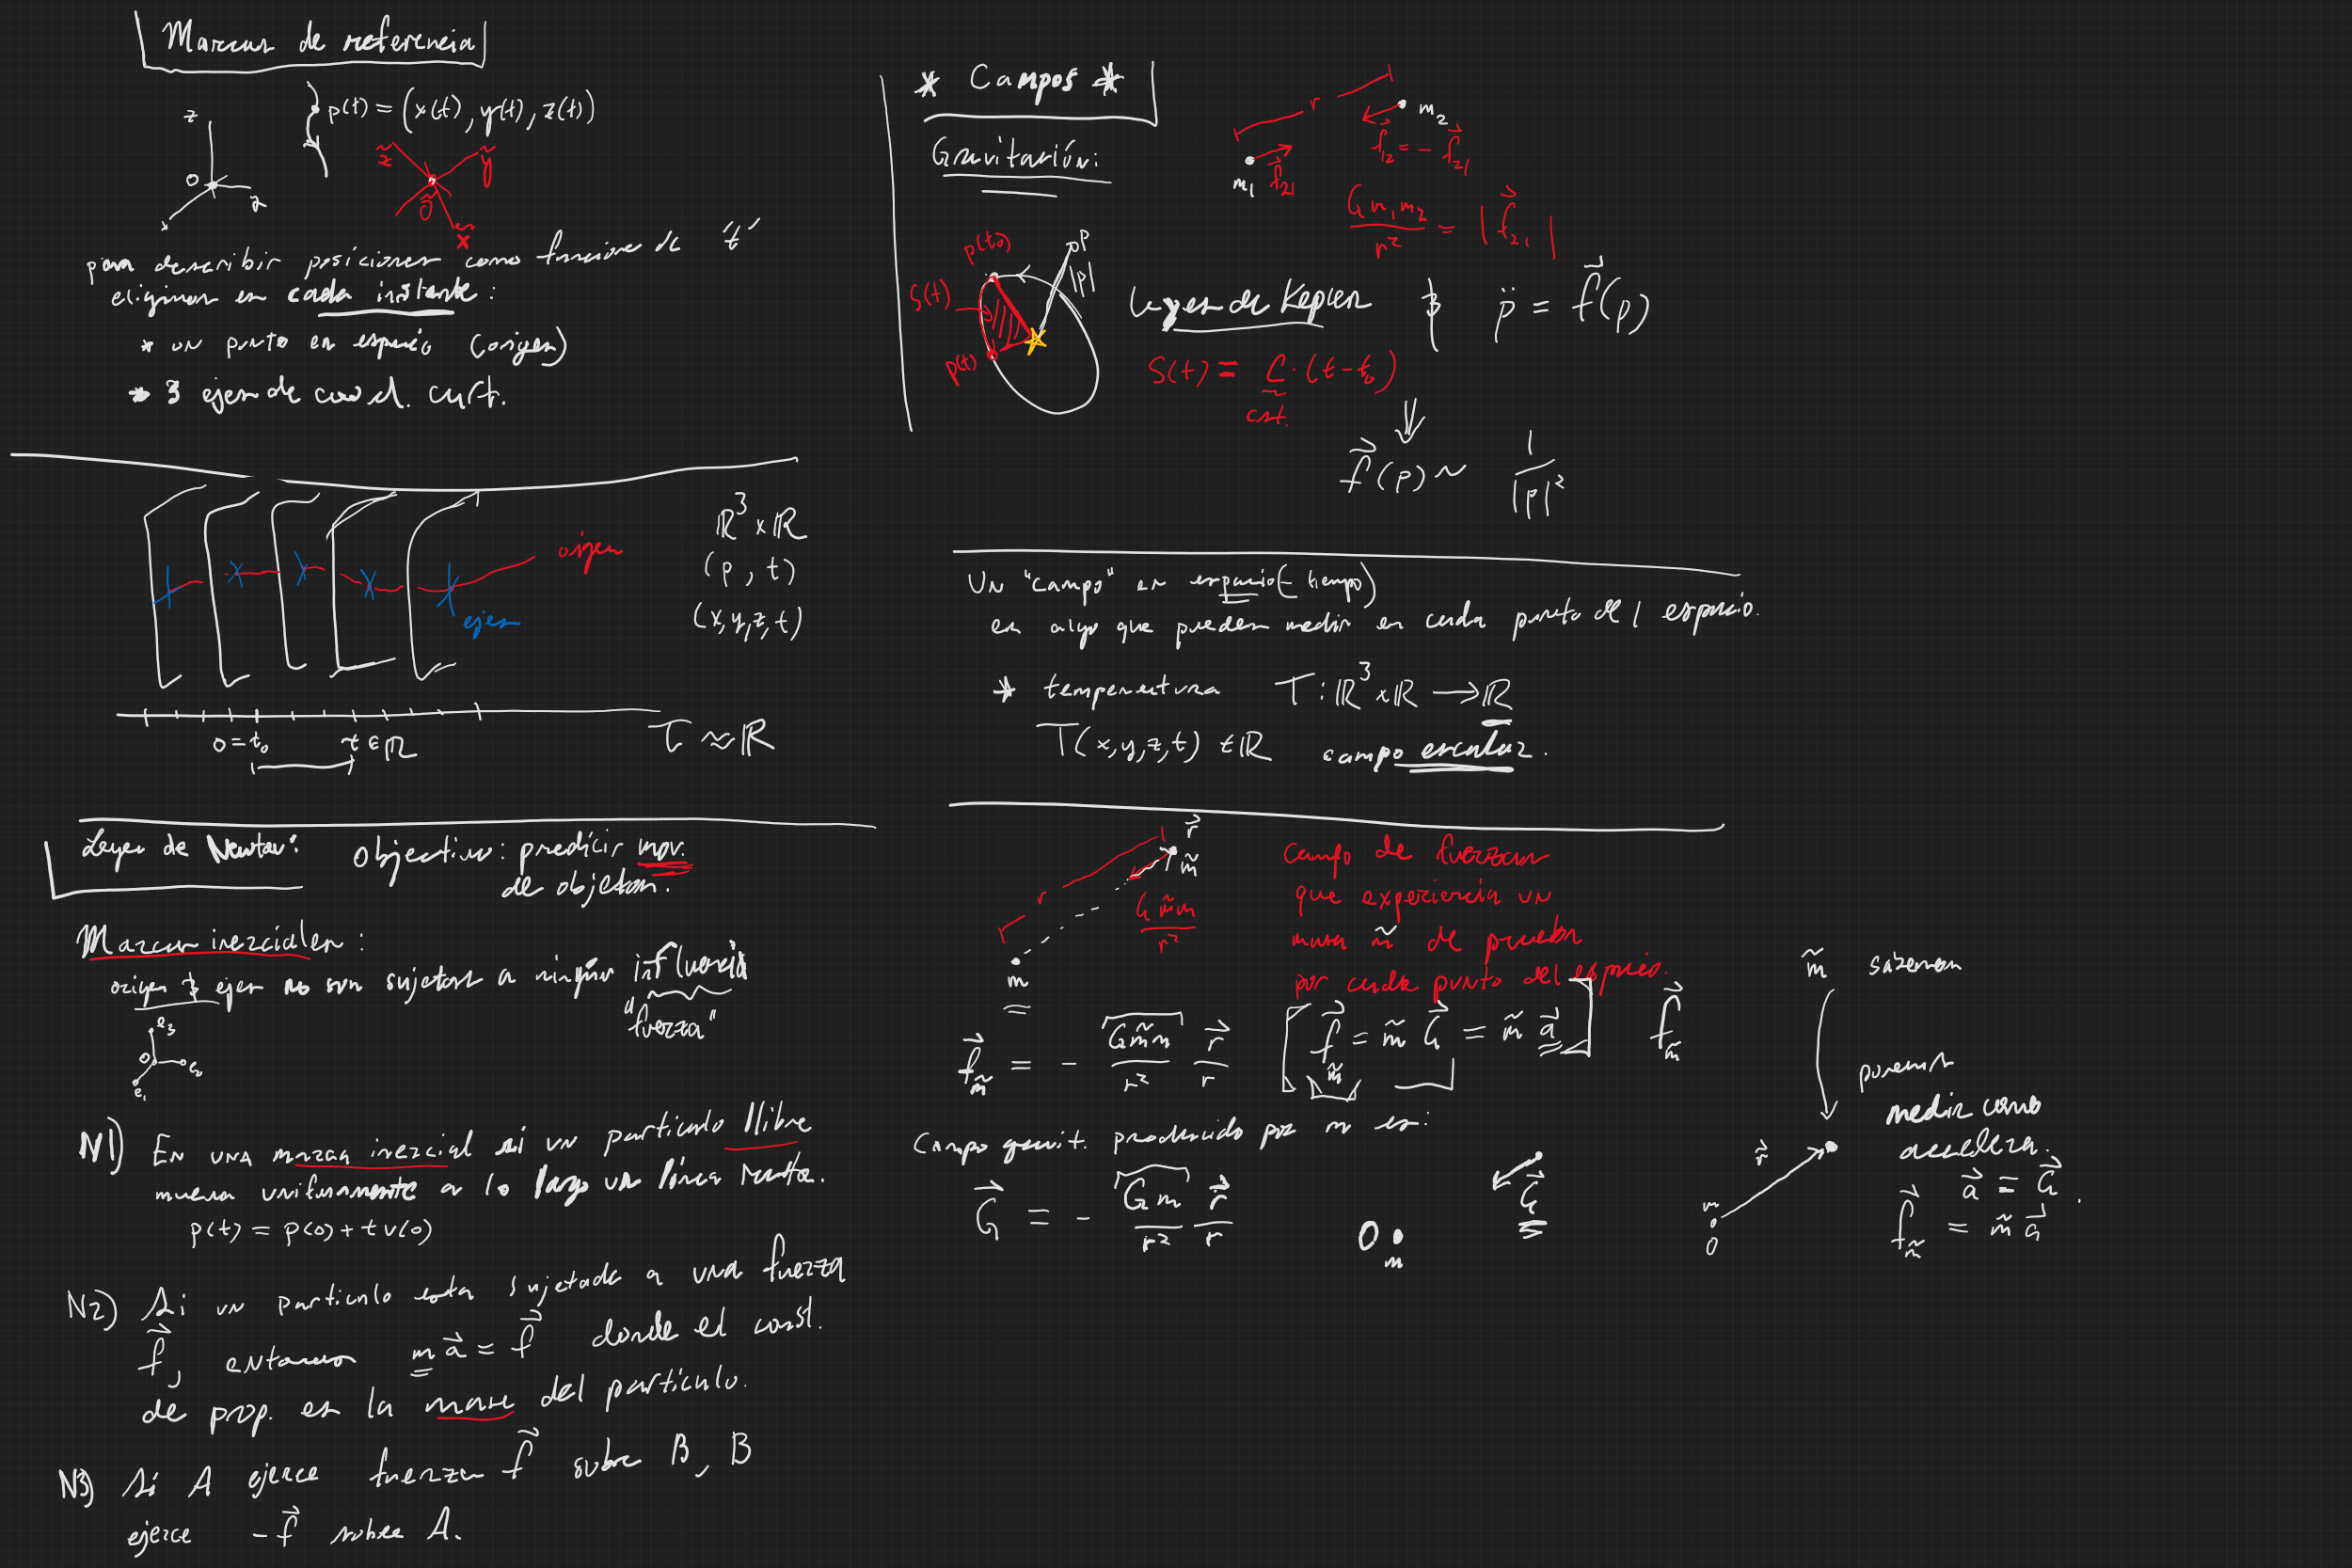 Marcos de referencia
z
p(t) = (x(t), y(t), z(t))
O
x
z̃
ỹ
Õ
x̃
para describir posiciones como funciones de 't'
eligimos en cada instante:
* un punto en espacio (origen)
* 3 ejes de coord. cart.
origen
ejes
ℝ³ × ℝ
(p, t)
(x, y, z, t)
0 = t₀
t ∈ ℝ
T ≈ ℝ
Leyes de Newton: Objectivo: predicir mov.
de objetos.
Marcos inerciales:
origen & ejes no son sujetos a ningún influencia
"fuerza"
e₃
O
e₂
e₁
N1) En una marca inercial si un particulo llibre
mueva uniformamente a lo largo un línea recta.
p(t) = p(0) + t v(0)
N2) Si un particulo esta sujetado a una fuerza
f⃗, entonces m a⃗ = f⃗ donde el const.
de prop. es la masa del particulo.
N3) Si A ejerce fuerza f⃗ sobre B, B
ejerce -f⃗ sobre A.
* Campos *
Gravitación:
r
m₂
f⃗₁₂ = - f⃗₂₁
m₁
f⃗₂₁
G m₁ m₂ / r² = | f⃗₂₁ |
p(t₀)
p
|p|
S(t)
p(t)
Leyes de Kepler & p̈ = f⃗(p)
S(t) = C · (t - t₀)
cst.
⇓
f⃗(p) ~ 1 / |p|²
Un "campo" en espacio(-tiempo)
es algo que puedes medir en cada punto del espacio.
* temperatura T : ℝ³ × ℝ → ℝ
T(x, y, z, t) ∈ ℝ campo escalar.
r⃗
m̃
r
G m̃ m / r²
m
Campo de fuerzas
que experiencia un
masa m̃ de prueba
por cada punto del espacio.
f⃗_m̃ = - G m̃ m / r² r⃗ / r
[ f⃗_m̃ = m̃ G⃗ = m̃ a⃗ ]
f⃗_m̃
Campo gravit. producido por m es:
G⃗ = - G m / r² r⃗ / r
O
m
G⃗
m̃ sabemos
podemos
medir como
accelera.
r⃗
m
O
a⃗ = G⃗.
f⃗_m̃ = m̃ a⃗